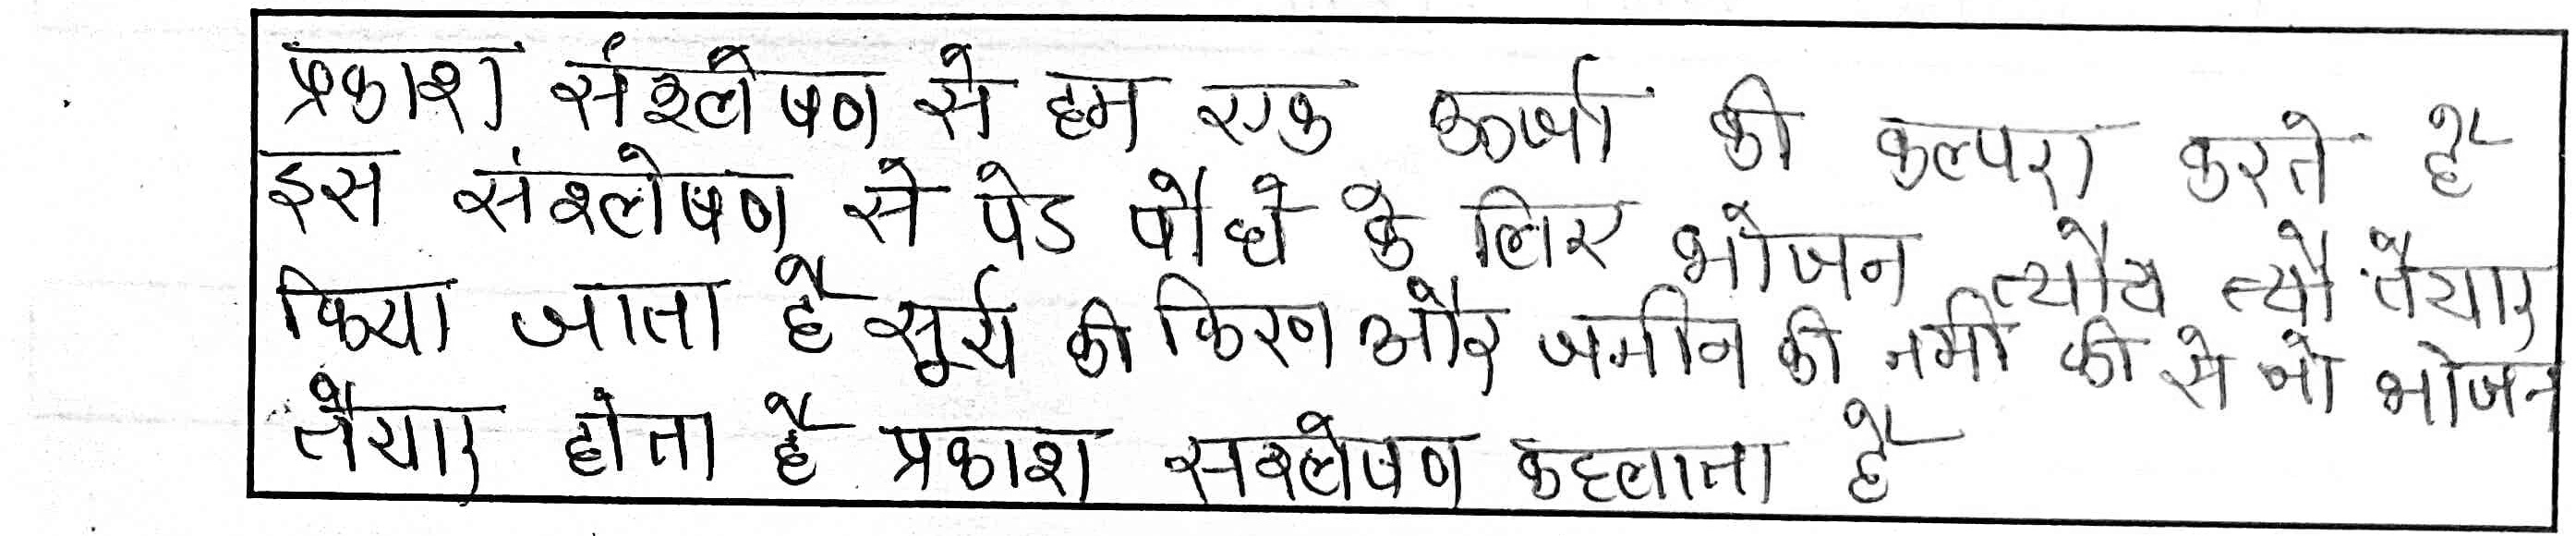 प्रकाश संश्लेषण से हम एक ऊर्जा की कल्पना करते है
इस संश्लेषण से पेड पौधे के लिए भोजन तैयार
किया जाता है सूर्य की किरण और जमीन की नमी की से जो भोजन
तैयार होता है प्रकाश सश्लेषण कहलाता है